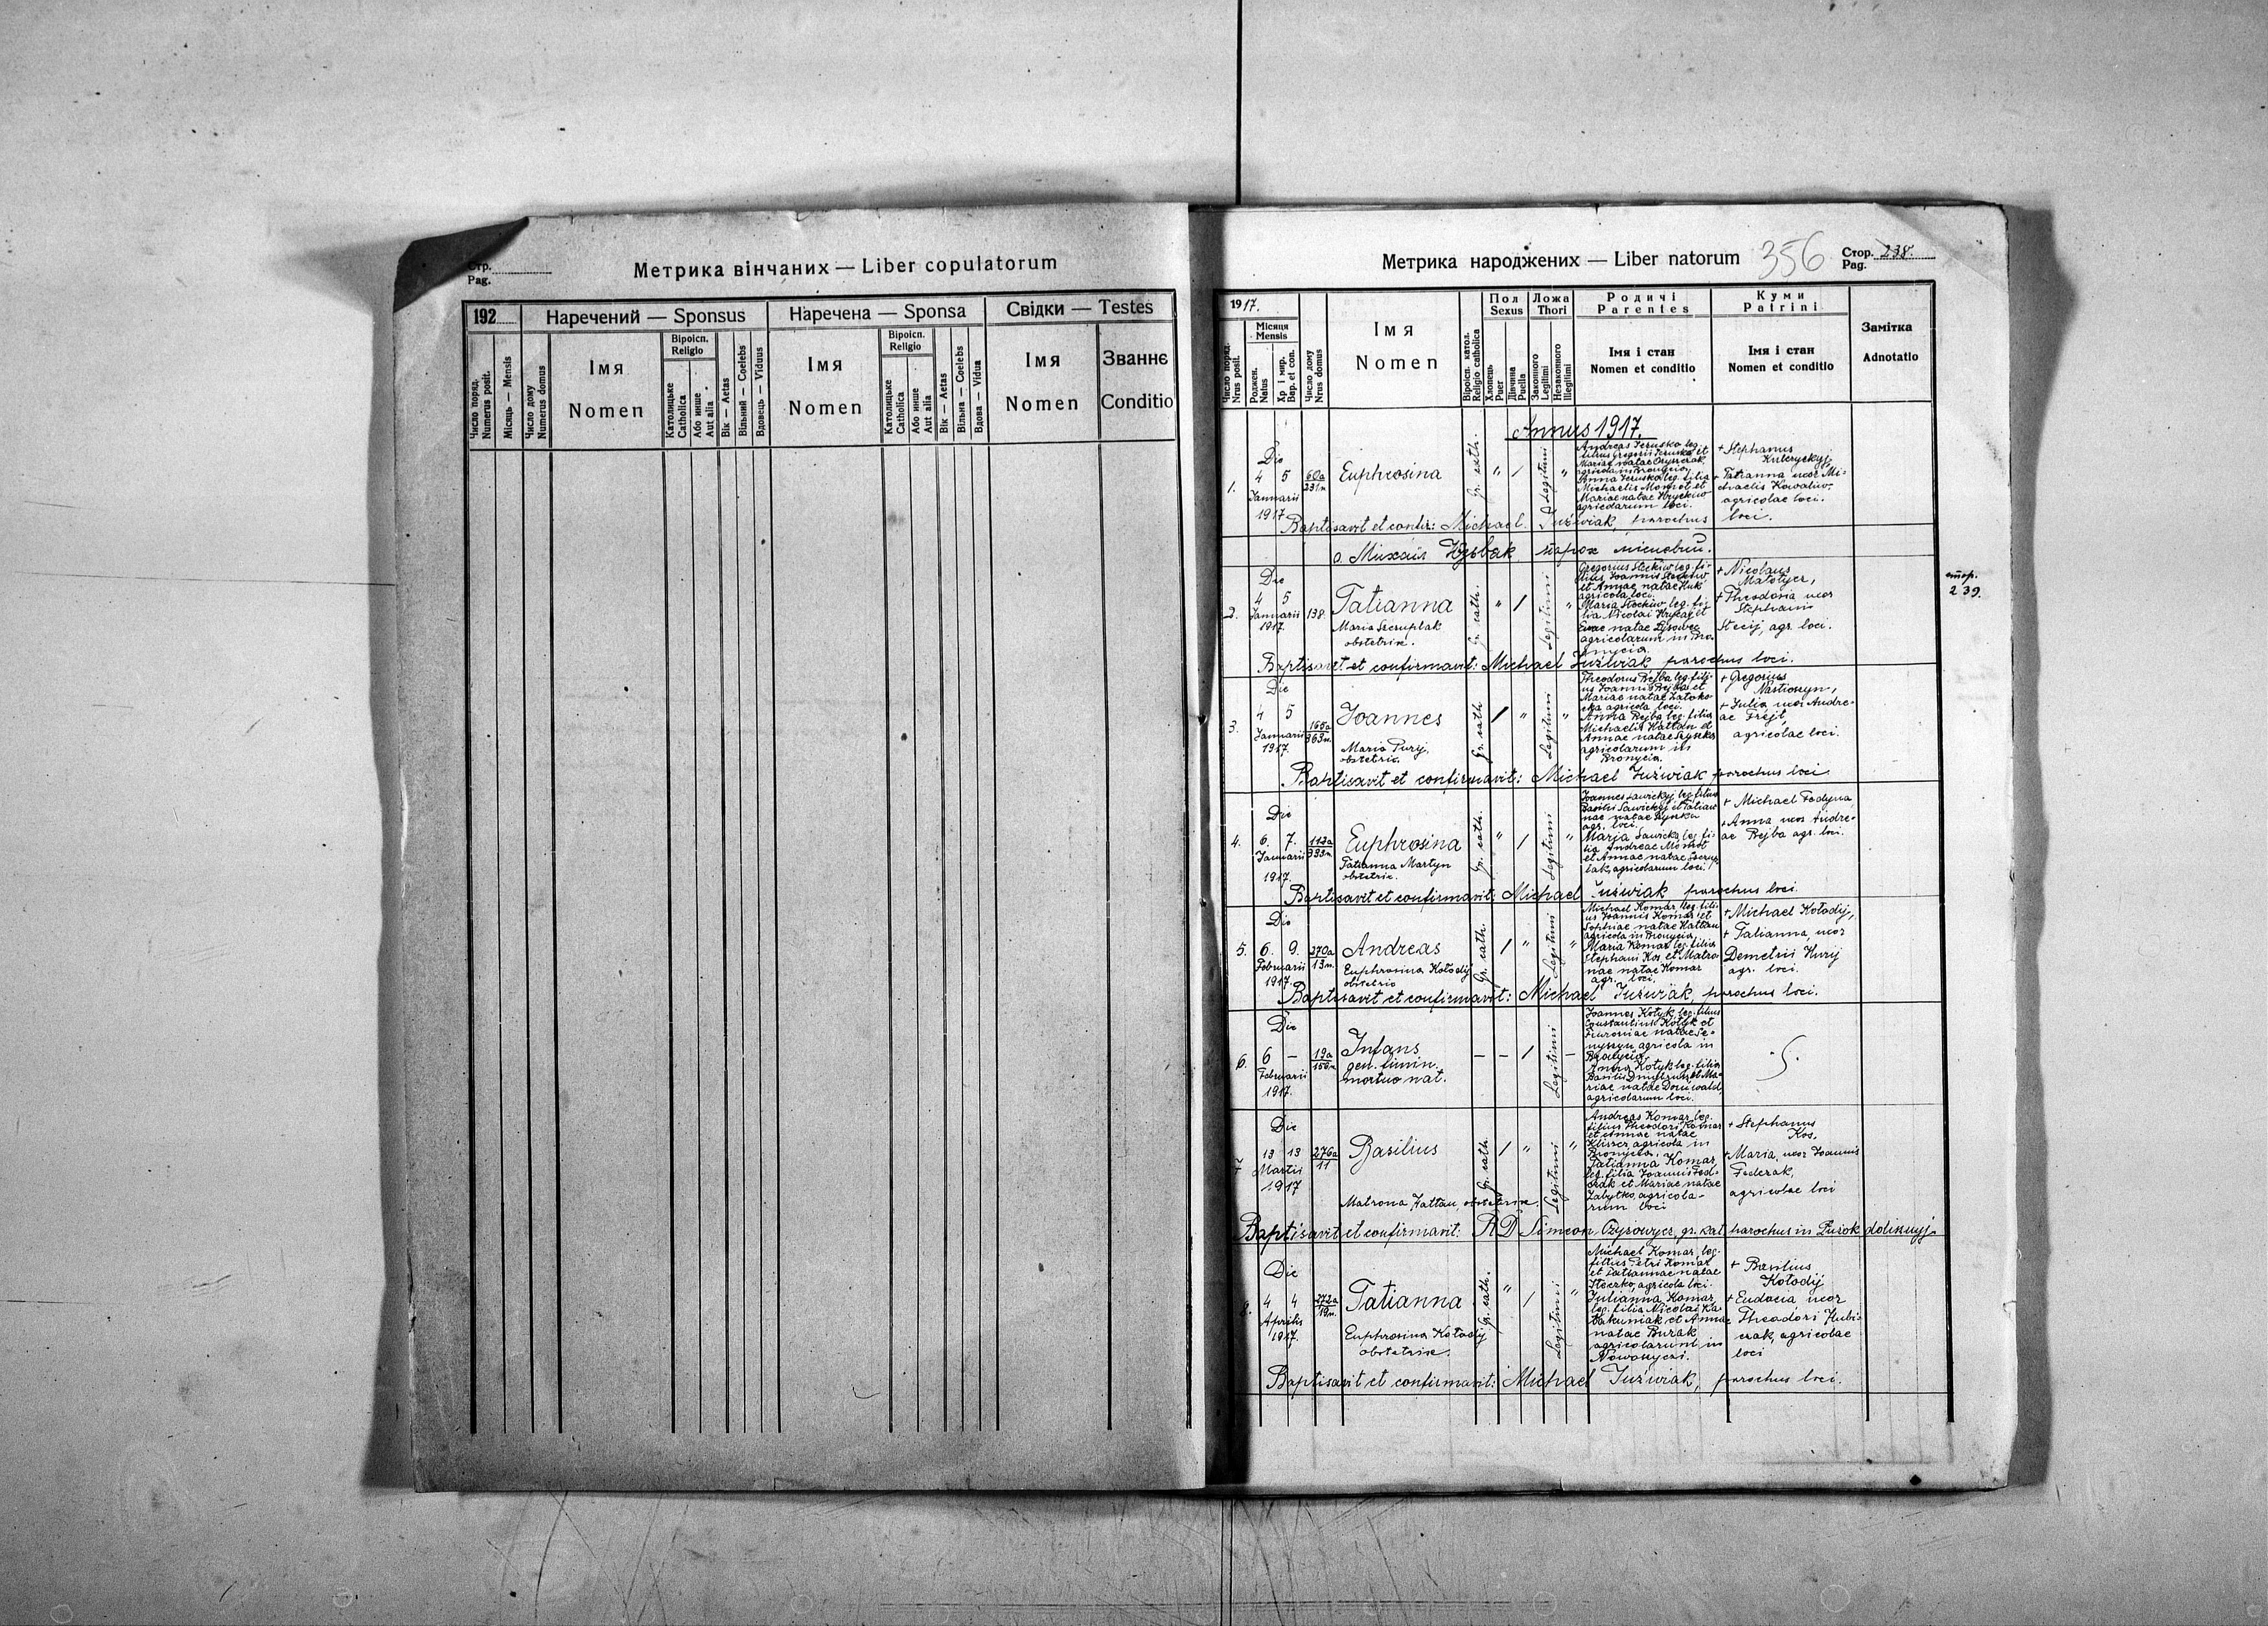 Стр.
Pag.
Метрика вінчаних — Liber copulatorum
192
Наречений — Sponsus
Наречена — Sponsa
Свідки — Testes
Число поряд.
Numerus posit.
Місяць — Mensis
Число дому
Numerus domus
Імя
Nomen
Віроісп.
Religio
Католицьке
Catholica
Або инше
Aut alia
Вік — Aetas
Вільний — Coelebs
Вдовець — Viduus
Імя
Nomen
Віроісп.
Religio
Католицьке
Catholica
Або инше
Aut alia
Вік — Aetas
Вільна — Coelebs
Вдова — Vidua
Імя
Nomen
Званнє
Conditio
Метрика народжених — Liber natorum
356
Стор. 238.
Pag.
1917.
Число поряд.
Nrus posit.
Місяця
Mensis
Роджен.
Natus
Хр і мир.
Bap. et con.
Число дому
Nrus domus
Імя
Nomen
Віроісп. катол.
Religio catholica
Пол
Sexus
Хлопець
Puer
Дівчина
Puella
Ложа
Thori
Законного
Legitimi
Незаконного
Illegitimi
Родичі
Parentes
Імя і стан
Nomen et conditio
Куми
Patrini
Імя і стан
Nomen et conditio
Замітка
Adnotatio
Annus 1917.
1.
Die
4 5
Januarii
1917
60a
231n
Euphrosina
Gr. cath.
" /
Legitimi
"
Michaelis Momot et
agricolarum loci.
+ Stephanus
+ Tatianna uxor Mi-
chaelis Kowaliw,
agricolae loci.
Baptisavit et confir: Michael Juźwiak, parochus loci.
о. Михаіл Юзьвак парох місцевий.
2.
Die
4 5
Januarii
1917.
138.
Tatianna
Maria Szczupłak
obstetrix.
Gr. cath.
" /
Legitimi
"
et Annae natae Huk
agricola loci.
agricolarum in Bro-
nycia.
+ Nicolaus
Matołycz,
+ Theodosia uxor
Stephani
Stecij, agr. loci.
стор.
239.
Baptisavit et confirmavit: Michael Juźwiak, parochus loci.
3.
Die
4 5
Januarii
1917.
Joannes
Maria Puryj,
obstetrix.
Gr. cath
/ "
Legitimi
"
Theodorus Rejba leg. fili-
us Joannis Rejba et
agricola loci.
Anna Rejba leg. filia
Michaelis Hattan et
agricolarum in
Bronycia.
+ Gregorius
Nastioszyn,
+ Julia uxor Andre-
ae Frejt,
agricolae loci.
Baptisavit et confirmavit: Michael Juźwiak parochus loci.
4.
Die
6. 7.
Januarii
1917.
112a
393n.
Euphrosina
Tatianna Martyn
obstetrix.
Gr. cath.
" /
Legitimi
"
Joannes Sawickyj leg. filius
agr. loci.
Maria Sawicka leg. fi-
lia Andreae Momot
+ Michael Fedyna
+ Anna uxor Andre-
ae Rejba agr. loci.
Baptisavit et confirmavit: Michael Juźwiak parochus loci.
5.
Die
6. 9.
Februarii
1917.
270a
13n.
Andreas
Euphrosina Kołodij
obstetrix
Gr. cath.
/ "
Legitimi
"
Michael Komar, leg. fili-
us Joannis Komar et
Sophiae natae Hattan
agricola in Bronycia,
Maria Komar leg. filia
Stephani Kos et Matro-
nae natae Komar
agr. loci.
+ Michael Kołodij,
+ Tatianna, uxor
Demetrii Huryj
agr. loci.
Baptisavit et confirmavit: Michael Juźwiak, parochus loci.
6.
Die
6 –
Februarii
1917.
Infans
gen. fimin.
mortuo nat.
– – /
Legitimi
–
Joannes Kotyk leg. filius
Constantini Kotyk et
agricola in
Bronycia,
agricolarum loci.
7
Die
13 13
Martii
1917
276a
11
Basilius
Matrona Hattan, obstetrix.
Gr. cath.
/ "
Legitimi
"
Andreas Komar, leg.
filius Theodori Komar
et Annae natae
agricola in
Bronycia.
Tatianna Komar
leg. filia Joannis Fed-
czak et Mariae natae
Zabytko, agricola-
rum loci
+ Stephanus
Kos,
+ Maria, uxor Joannis
Fedczak,
agricolae loci
Baptisavit et confirmavit: RD Simeon Czyrowycz, gr. kat parochus in Łużok dolisznyj.
8.
Die
4 4
Aprilis
1917.
272a
19n.
Tatianna
Euphrosina Kołodij
obstetrix.
Gr. cath.
" /
Legitimi
"
Michael Komar, leg.
filius Petri Komar
et Tatiannae natae
agricola loci.
Julianna Komar
leg. filia Nicolai
natae Burak
agricolarum in
+ Basilius
Kołodij
+ Eudocia uxor
Theodori
agricolae
loci
Baptisavit et confirmavit: Michael Juźwiak, parochus loci.